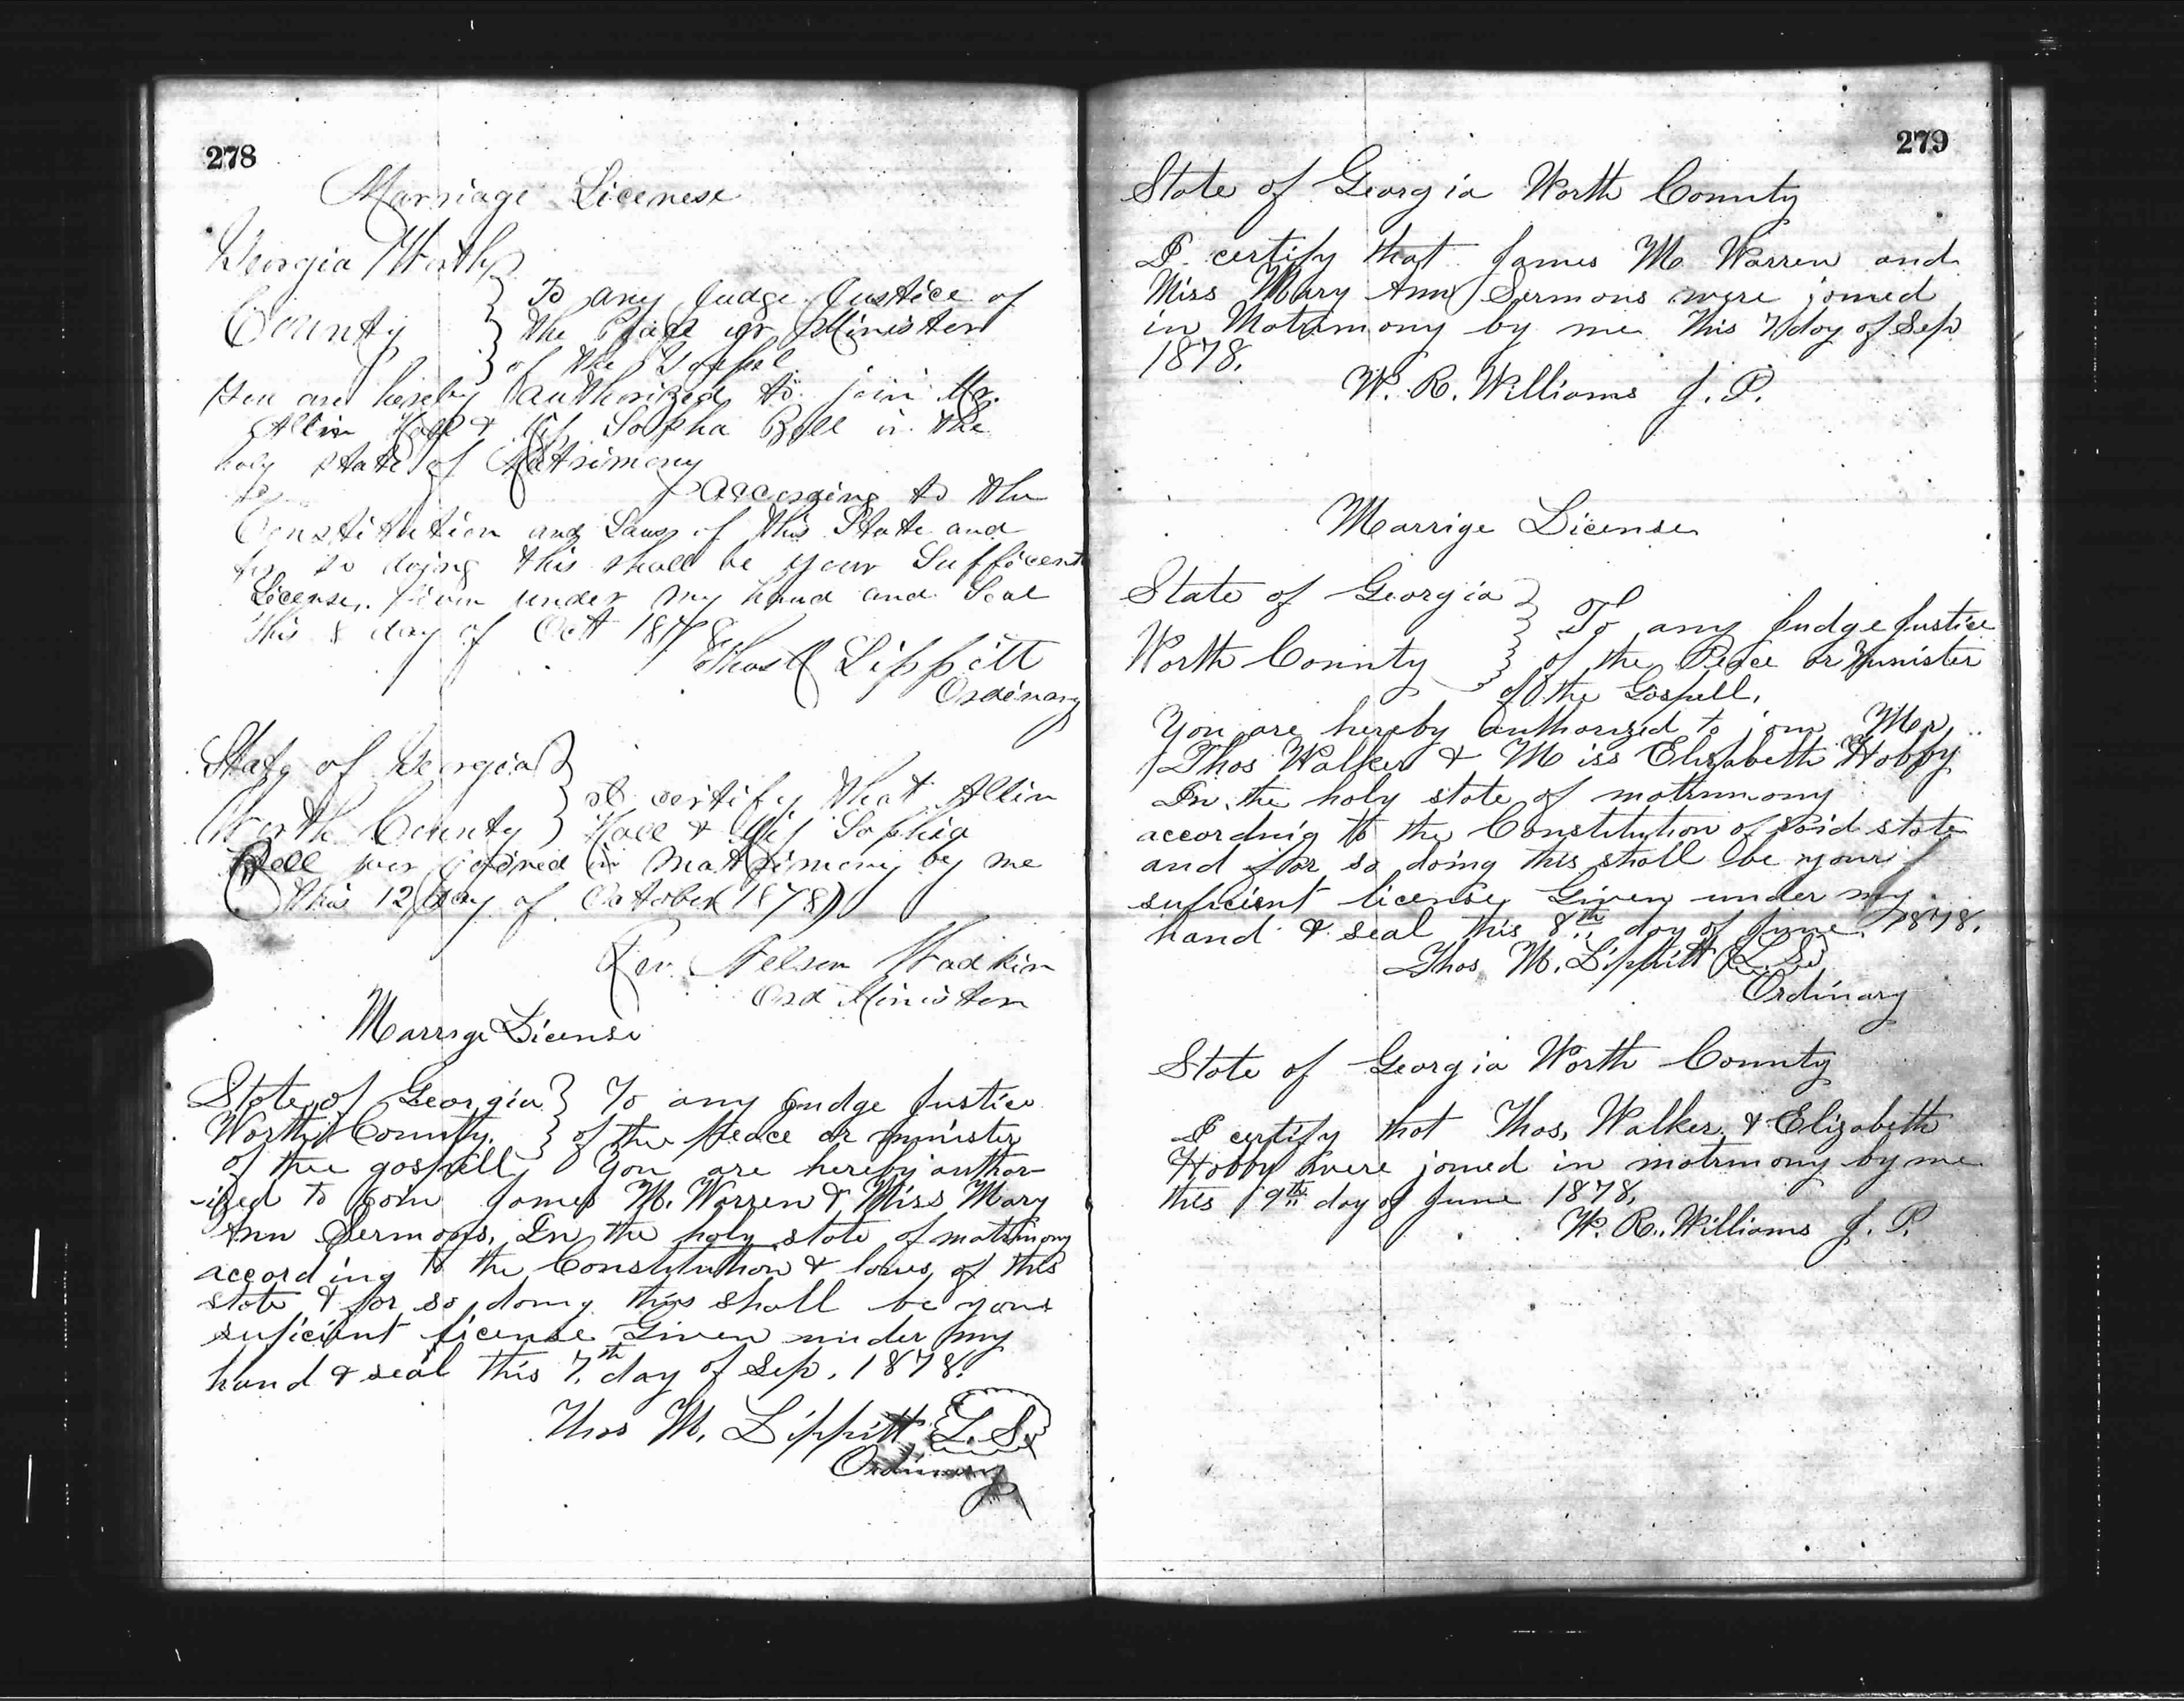 278
Marriage Licenese
Georgia Worth
County
To any Judge Justice of
the Peace or Minister
of the Gospel
You are hereby authorized to join Mr.
Allin Hall & Miss Sopha Bell in the
holy state of Matrimony
According to the
Constitution and Laws of this State and
for so doing this shall be your Sufficent
License. Given under my hand and Seal
This 8 day of Oct 1878
Thos Lippitt
Ordinary
State of Georgia
Worth County
I certify that Allin
Hall & Miss Sophia
Bell wer joined in Matrimony by me
this 12 day of October 1878
Rev. Nelson Wadkin
Ord Minister
Marrige License
State of Georgia } To any Judge Justice
Worth County. } of the peace or minister
of the gospell, You are hereby author-
ized to join James M. Warren & Miss Mary
Ann Sermons, In the holy state of matrimony
according to the Constitution & laws of this
state & for so doing this shall be your
suficient license Given under my
hand & seal this 7th day of Sep. 1878.
Thos M. Lippitt L.S.
Ordinary
279
State of Georgia Worth County
I certify that James M Warren and
Miss Mary Ann Sermons were joined
in Matrimony by me this 7 day of Sep
1878.
W. R. Williams J. P.
Marrige License
State of Georgia
Worth County
To any Judge Justice
of the Peace or Minister
of the Gospell.
You are hereby authorized to join Mr.
Thos Walker & Miss Elizabeth Hobby
In the holy state of matrimony
according to the Constitution of said state
and for so doing this shall be your
suficient license Given under my
hand & seal this 8th day of June 1878.
Thos M. Lippitt (L.S.)
Ordinary
State of Georgia Worth County
I certify that Thos. Walker & Elizabeth
Hobby were joined in matrimony by me
this 9th day of June 1878.
W. R. Williams J. P.